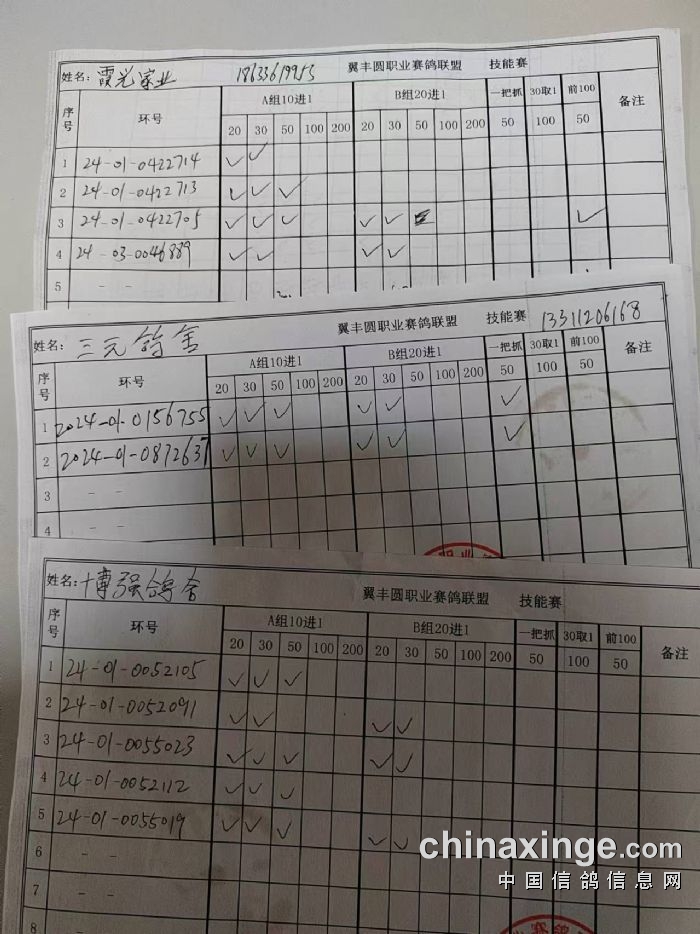 姓名: 霞光家业 18633619953 翼丰圆职业赛鸽联盟 技能赛
序号 环号 A组10进1 B组20进1 一把抓 30取1 前100 备注
20 30 50 100 200 20 30 50 100 200 50 100 50
1 24-01-0422714 ✓ ✓
2 24-01-0422713 ✓ ✓ ✓
3 24-01-0422705 ✓ ✓ ✓ ✓ ✓ ✓
4 24-03-0046889 ✓ ✓ ✓ ✓
5 - -
姓名: 三元鸽舍 翼丰圆职业赛鸽联盟 技能赛 13311206168
序号 环号 A组10进1 B组20进1 一把抓 30取1 前100 备注
20 30 50 100 200 20 30 50 100 200 50 100 50
1 2024-01-0156755 ✓ ✓ ✓ ✓ ✓ ✓
2 2024-01-0872637 ✓ ✓ ✓ ✓ ✓ ✓
3 - -
4 - -
姓名: 博强鸽舍 翼丰圆职业赛鸽联盟 技能赛
序号 环号 A组10进1 B组20进1 一把抓 30取1 前100 备注
20 30 50 100 200 20 30 50 100 200 50 100 50
1 24-01-0052105 ✓ ✓ ✓
2 24-01-0052091 ✓ ✓ ✓ ✓
3 24-01-0055023 ✓ ✓ ✓ ✓ ✓
4 24-01-0052112 ✓ ✓ ✓
5 24-01-0055019 ✓ ✓ ✓ ✓ ✓
6 - -
7 - -
8 - -
chinaxinge.com
中国信鸽信息网